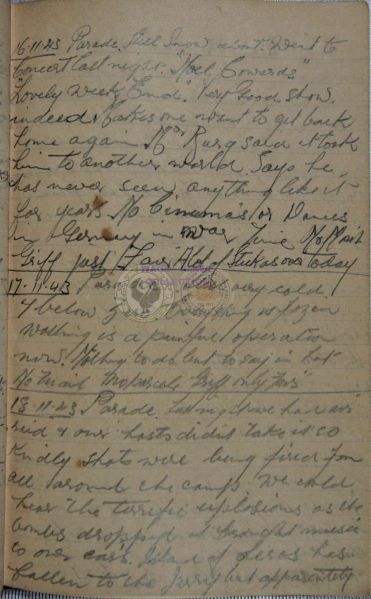 16-11-43 Parade. Still Snow about. Went to
Concert last night. Noel Cowards
"Lovely Week End". Very Good show
indeed. Makes one want to get back
home again. Mr Burg said it took
him to another world. Says he
has never seen anything like it
for years. No Cinema's or Dances
in Germany in War Time No Mail
Griff just Fair A lot of Stukas over today
17-11-43 Parade very cold
4 below Everything is frozen
walking is a painful operation
now. Nothing to do but to stay in hut
No Mail No Parcels Griff only Fair
18-11-43 Parade, last night we had air
raid & our hosts didn't take it so
kindly shots were being fired from
all around the camp. We could
hear the terrific explosions as the
bombs dropped it brought music
to our ears. Island of Leros has
fallen to the Jerry but apparently